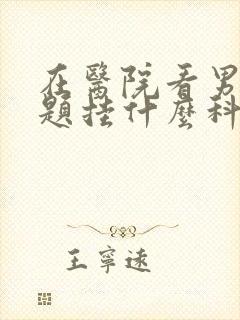 在醫院看男
題挂什麼科
王寧遠